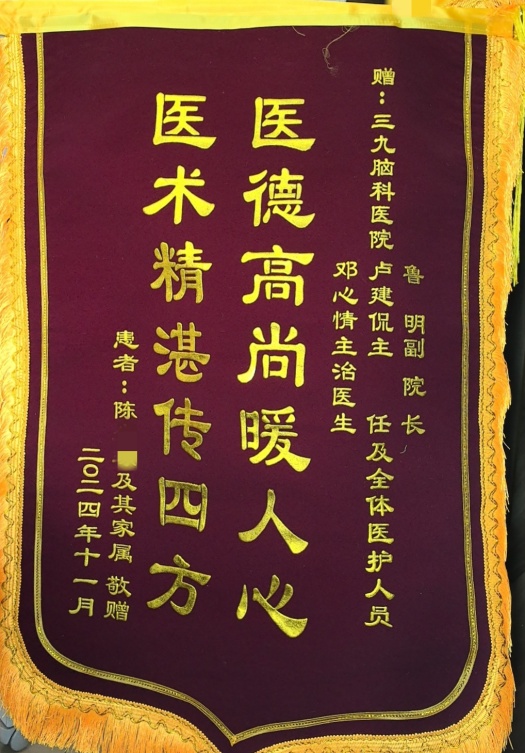 赠：三九脑科医院
鲁明副院长
卢建侃主任及全体医护人员
邓心情主治医生
医德高尚暖人心
医术精湛传四方
患者：陈
及其家属 敬赠
二〇二四年十一月